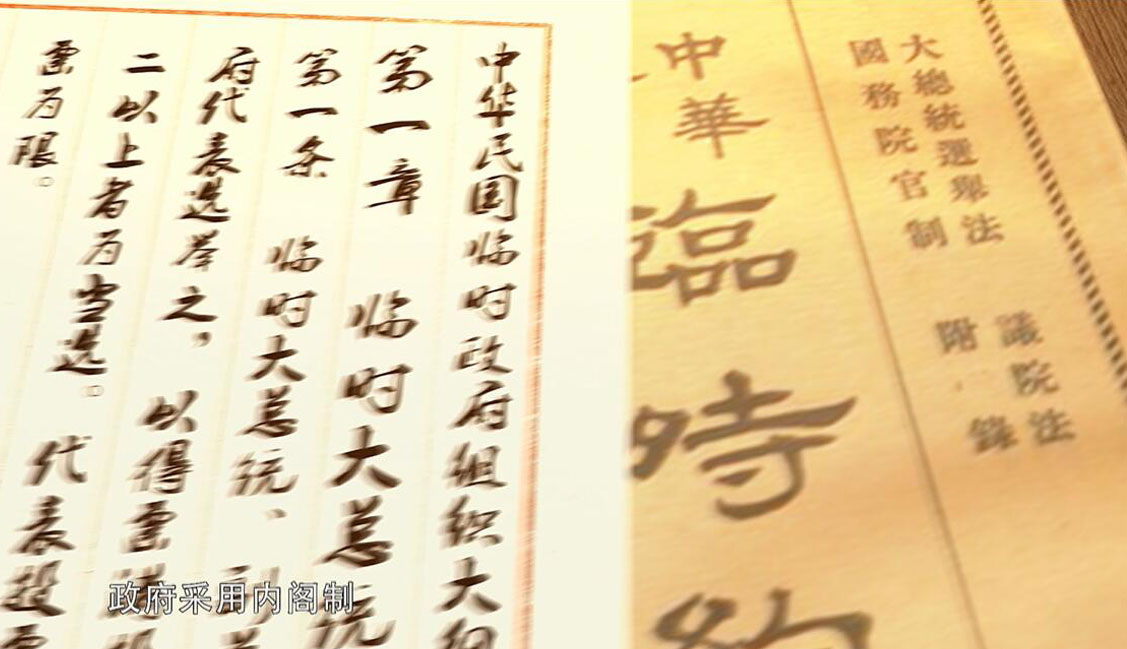 中华民国临时政府组织大纲
第一章 临时大总统
第一条 临时大总统、副总
府代表选举之，以得票满
二以上者为当选。代表投票
票为限。
大總統選舉法
國務院官制
議院法
附錄
中華
臨時約
政府采用内阁制